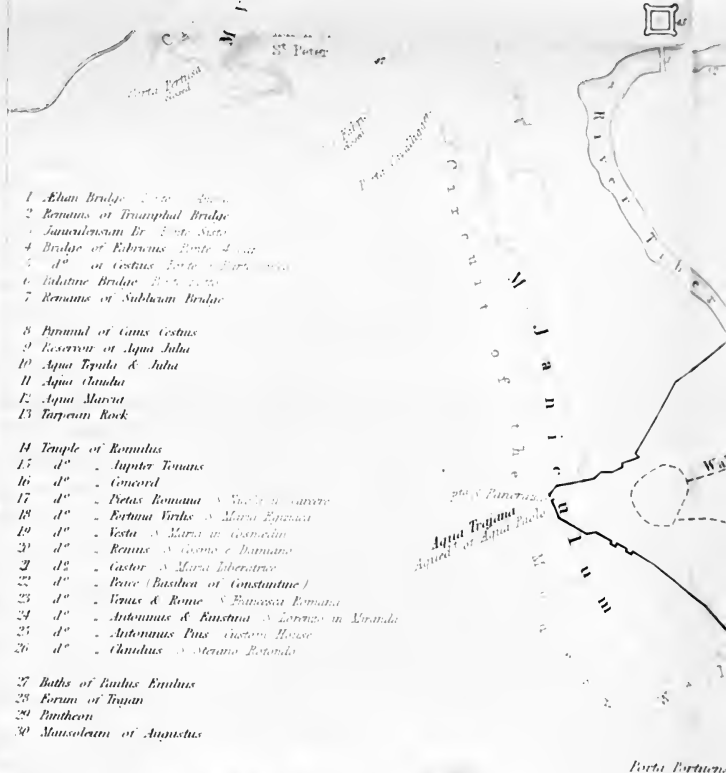 St Peter
Porta Pertusa
closed
River Tiber
Circuit of the
M. Janiculum
1 Ælian Bridge
2 Remains of Triumphal Bridge
3 Janiculensian Br Ponte Sisto
4 Bridge of Fabricius Ponte 4
5 do of Cestius Ponte
6 Palatine Bridge
7 Remains of Sublician Bridge
8 Pyramid of Caius Cestius
9 Reservoir of Aqua Julia
10 Aqua Tepula & Julia
11 Aqua Claudia
12 Aqua Marcia
13 Tarpeian Rock
14 Temple of Romulus
15 do " Jupiter Tonans
16 do " Concord
17 do " Pietas Romana S Nicola in Carcere
18 do " Fortuna Virilis S Maria Egiziaca
19 do " Vesta S Maria in Cosmedin
20 do " Remus S Cosmo e Damiano
21 do " Castor S Maria Liberatrice
22 do " Peace (Basilica of Constantine)
23 do " Venus & Rome S Francesca Romana
24 do " Antoninus & Faustina S Lorenzo in Miranda
25 do " Antoninus Pius Custom House
26 do " Claudius S Stefano Rotondo
27 Baths of Paulus Emilius
28 Forum of Trajan
29 Pantheon
30 Mausoleum of Augustus
pta S Pancrazio
Aqua Trajana
Aquedt of Aqua Paolo
Wal
Porta Portuen